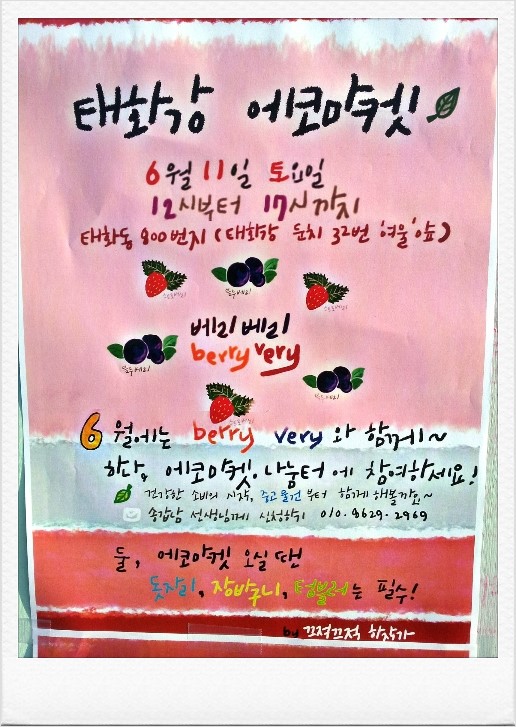 태화강 에코마켓
6월 11일 토요일
12시부터 17시까지
태화동 800번지 (태화강 둔치 32번 '여울'앞)
베리베리
berry very
6월에는 berry very와 함께~
하나, 에코마켓, 나눔터에 참여하세요!
건강한 소비의 시작, 중고물건부터 함께 해볼까요~
송갑남 선생님께 신청하기 010. 9629-2969
둘, 에코마켓 오실 땐
돗자리, 장바구니, 텀블러는 필수!
by 끄적끄적 한작가